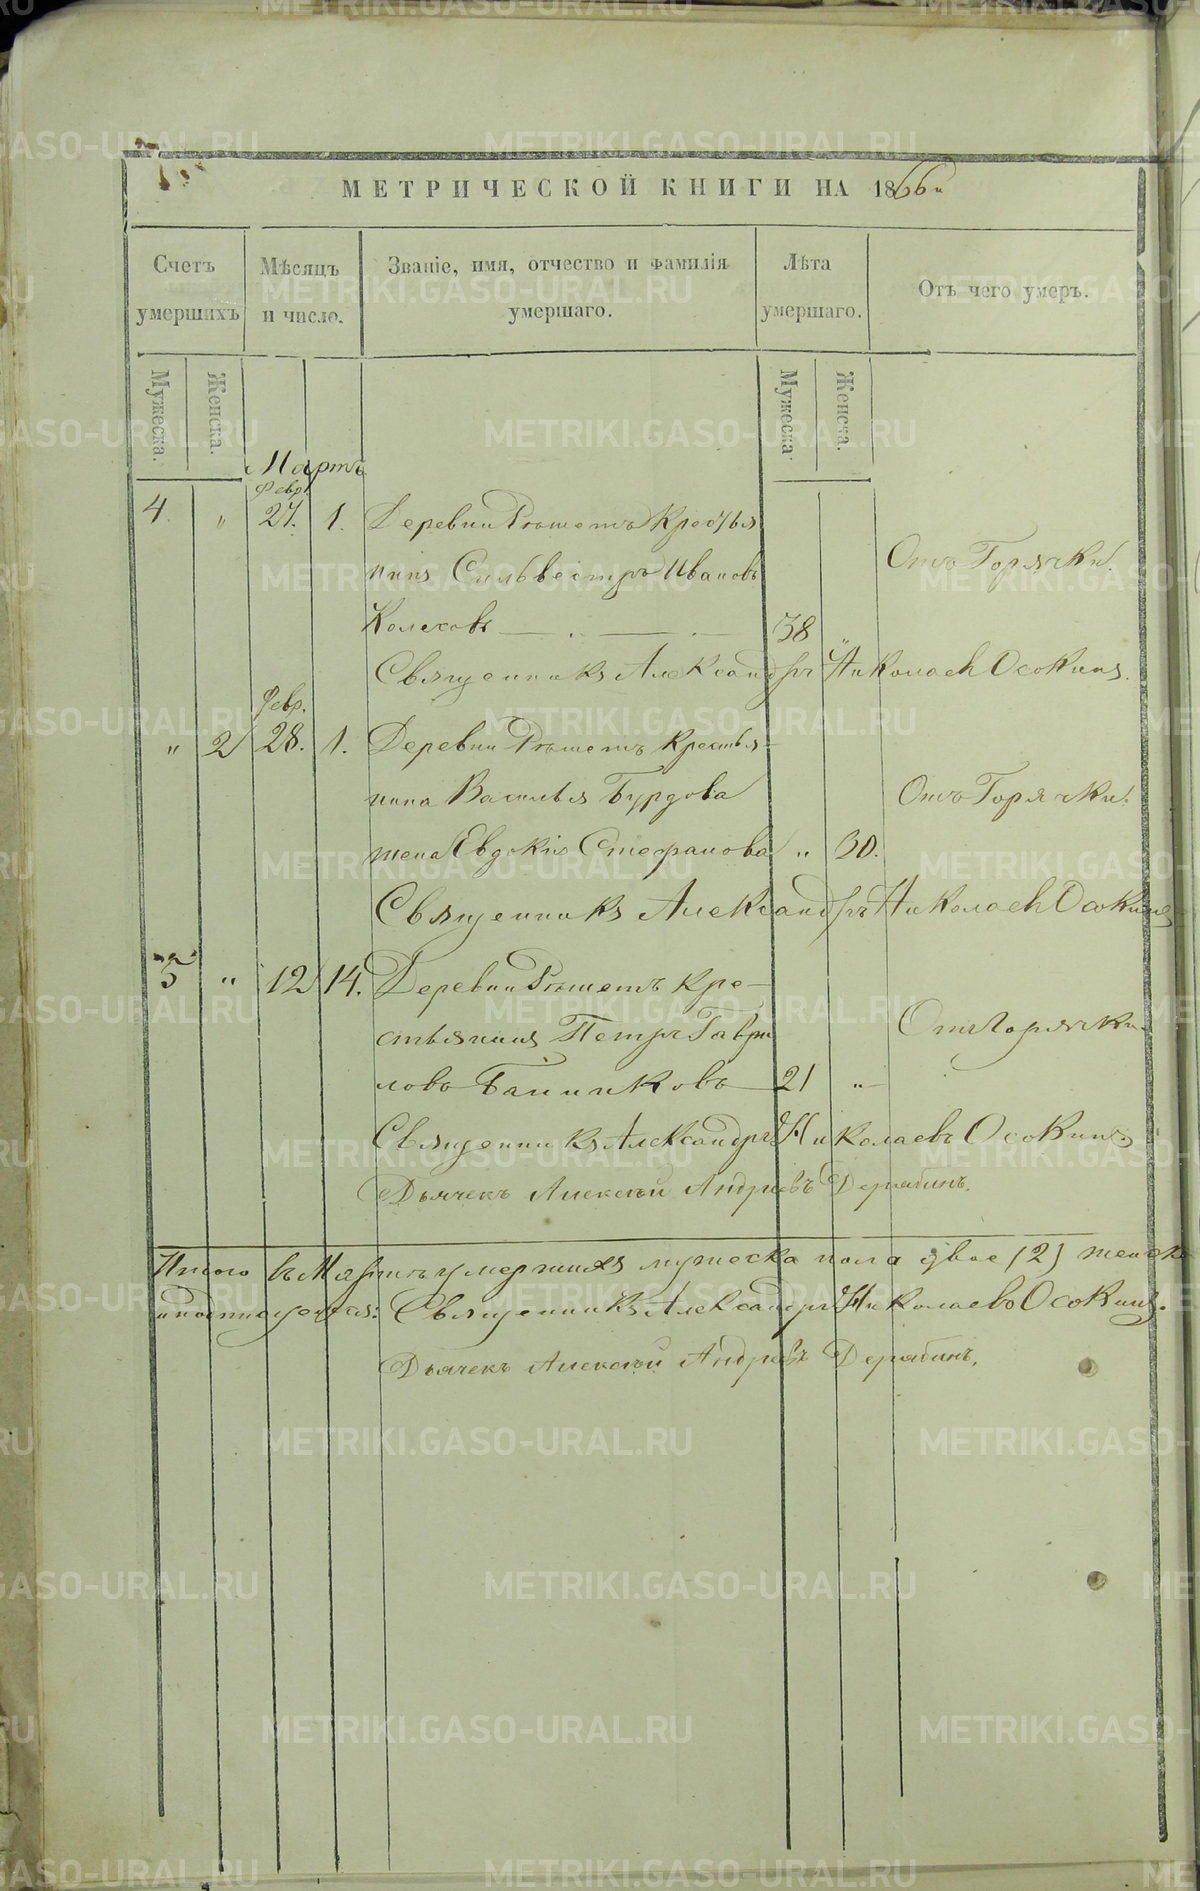 МЕТРИЧЕСКОЙ КНИГИ НА 1866й
Счетъ умершихъ
Мѣсяцъ и число.
Званіе, имя, отчество и фамилія умершаго.
Лѣта умершаго.
Отъ чего умеръ.
Мужеска.
Женска.
Мужеска.
Женска.
Мартъ
Февр.
4. " 27. 1. Деревни Рѣшетъ Крестья
нинъ Сильвестръ Ивановъ
Отъ Горячки.
38 "
Священникъ Александръ Николаевъ Осокинъ.
Февр.
" 2 28. 1. Деревни Рѣшетъ Крестья-
нина Василья Бурдова
Отъ Горячки.
жена Евдокія Стефанова " 30.
Священникъ Александръ Николаевъ Осокинъ
5 " 12 14. Деревни Рѣшетъ Кре-
стьянинъ Петръ Гаври
Отъ Горячки.
ловъ Банниковъ 21 "
Священникъ Александръ Николаевъ Осокинъ.
Дьячекъ Алексѣй Андреевъ Дерябинъ.
Итого въ Мартѣ умершихъ мужеска пола двое (2) женска
Священникъ Александръ Николаевъ Осокинъ.
Дьячекъ Алексѣй Андреевъ Дерябинъ.
METRIKI.GASO-URAL.RU